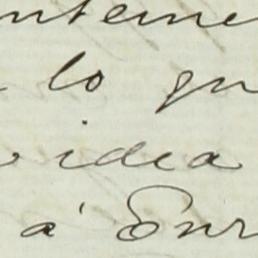 nteme
lo qu
idea
á Eur